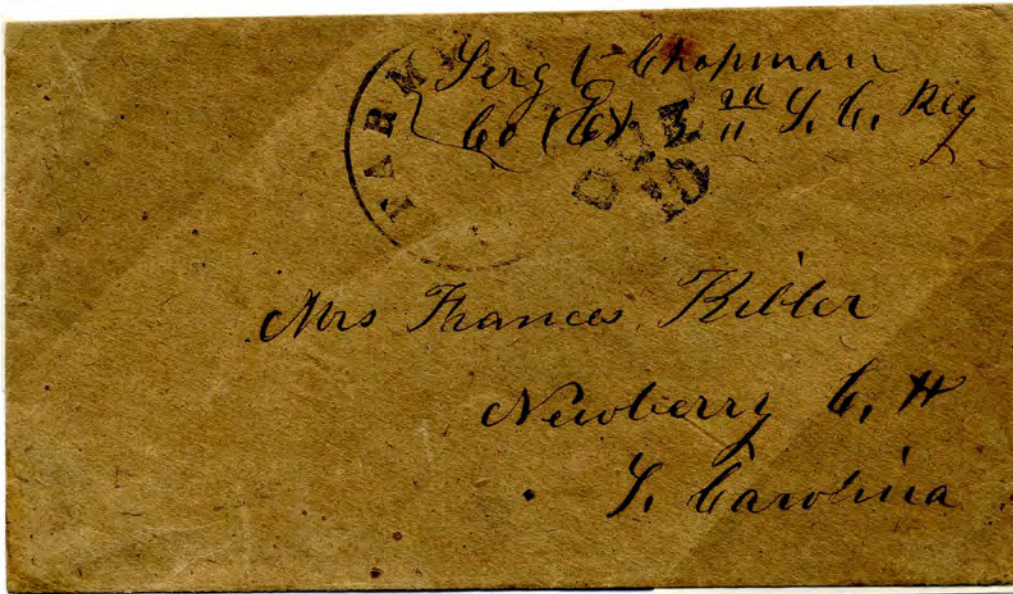 Sergt Chapman
Co (G) 11 S. C. Reg
TARM
DUE
10
Mrs Frances Kibler
Newberry C. H
S. Carolina